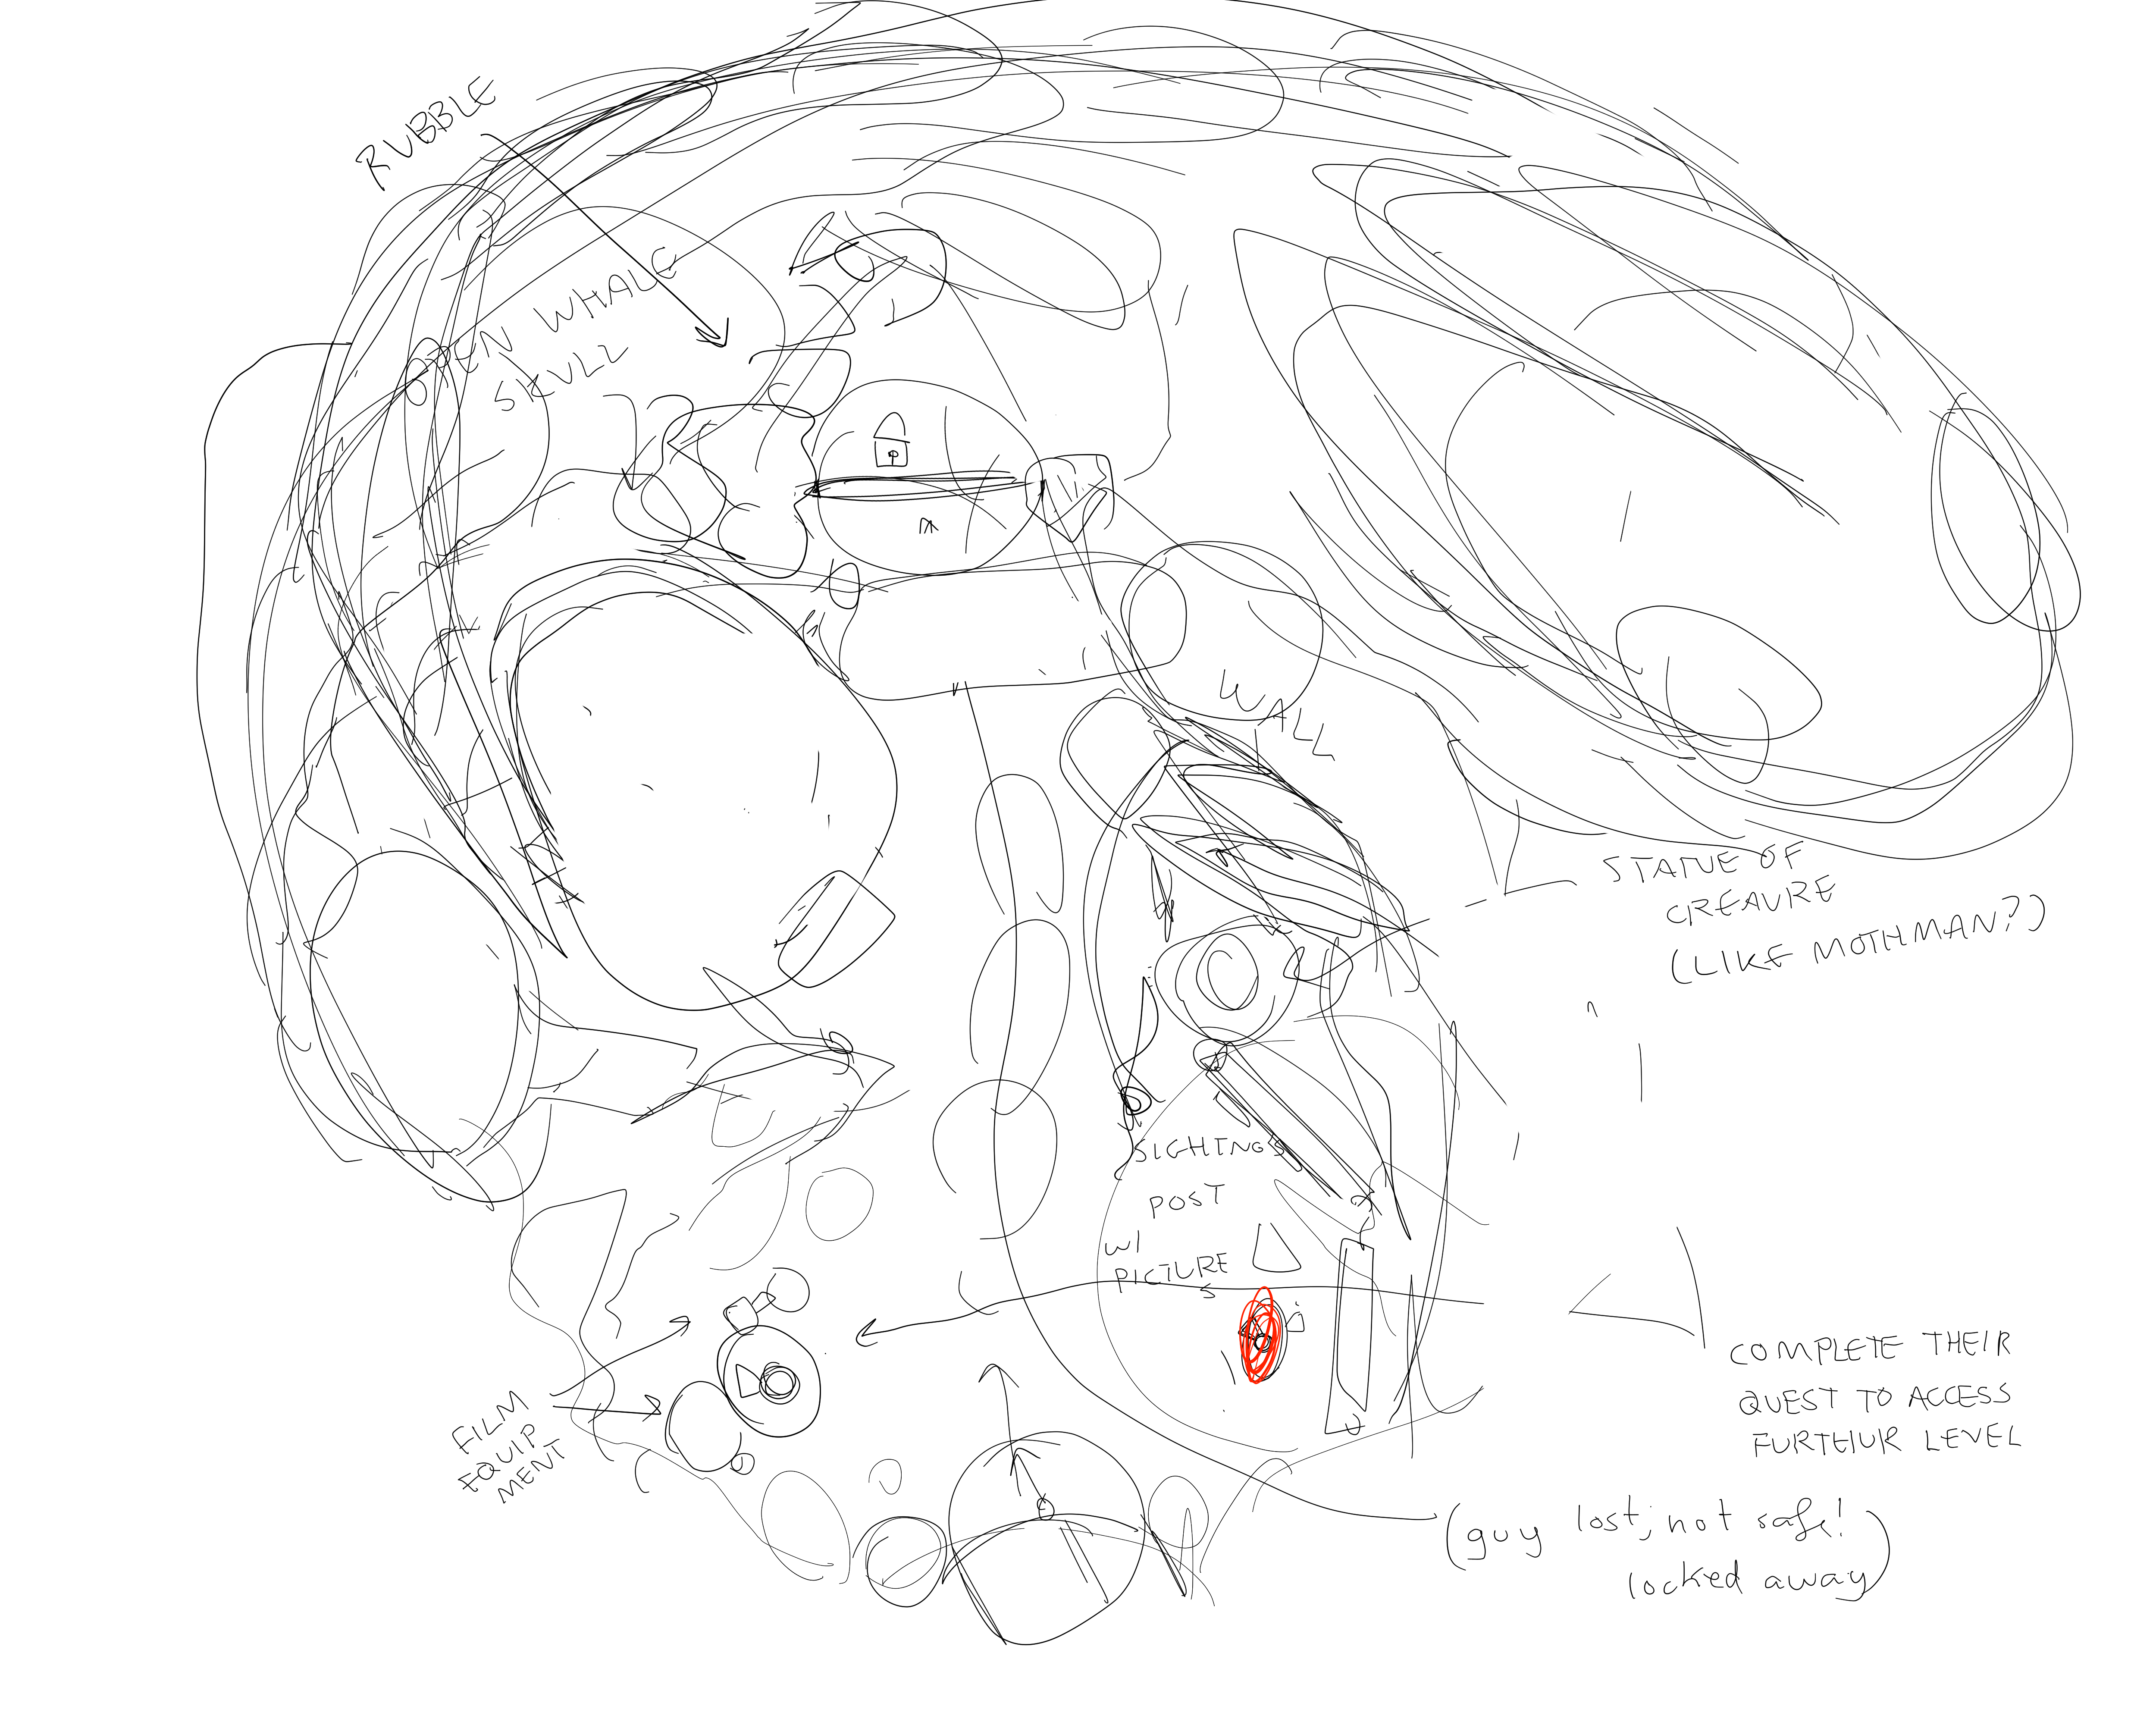 RUBBLE
OPEN WHALE
SKULL
WALL
STATUE OF
CREAURE
(LIKE MOTHMAN?)
SIGHTINGS
POST
W/
PICTURE
S
FILM
EQUIP
MENT
COMPLETE THEIR
QUEST TO ACCESS
FURTHUR LEVEL
(guy lost; not safe!
locked away)